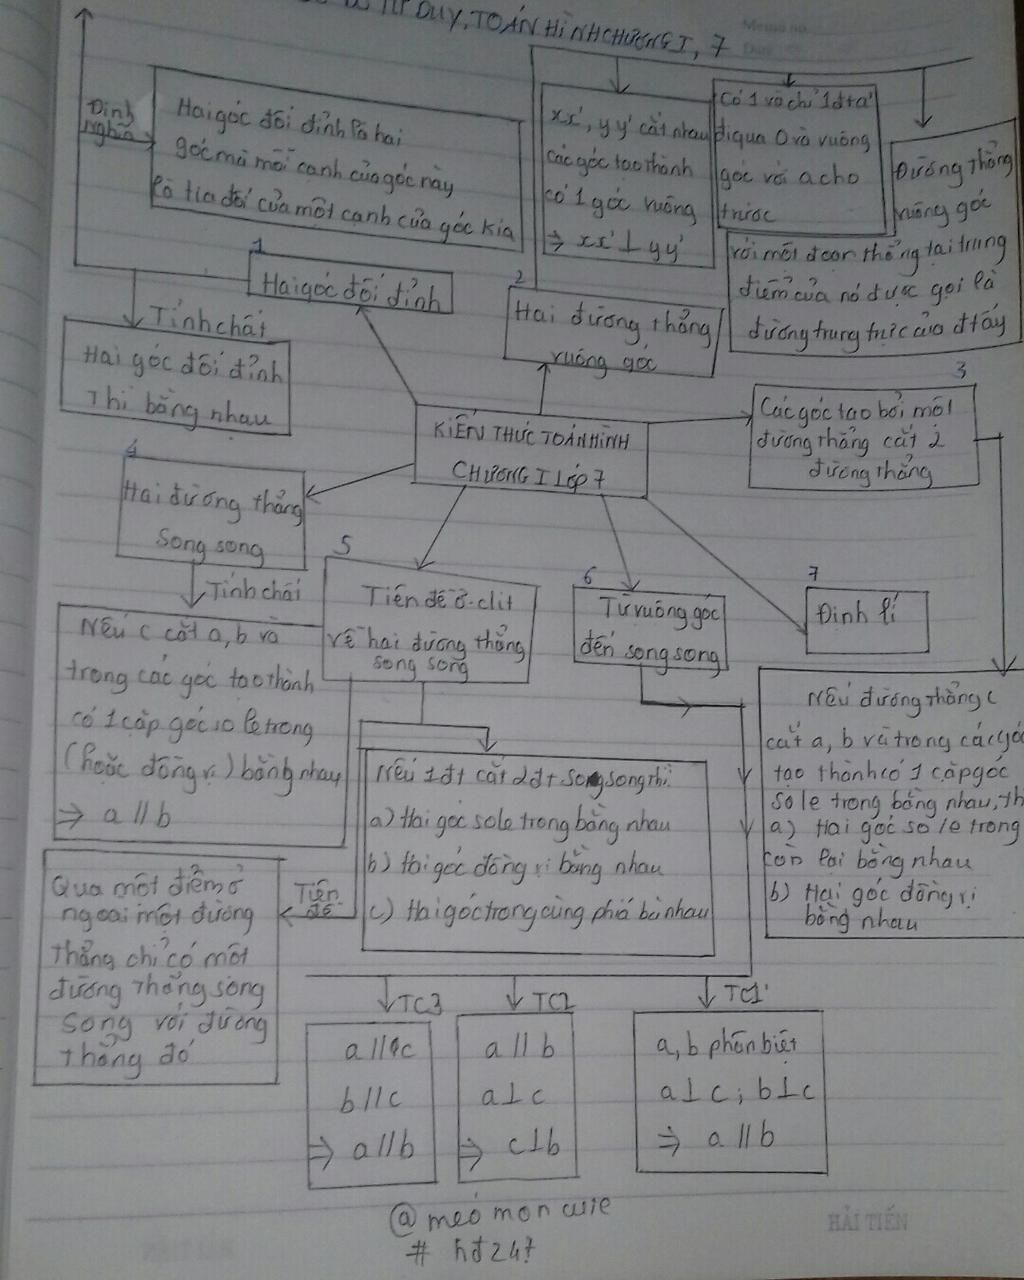 DUY, TOÁN HÌNH CHƯƠNG I, 7
Định
nghĩa
Hai góc đối đỉnh là hai
góc mà mỗi cạnh của góc này
là tia đối của một cạnh của góc kia
xx', yy' cắt nhau
các góc tạo thành
có 1 góc vuông
⇒ xx' ⊥ yy'
Có 1 và chỉ 1 đt a'
đi qua O và vuông
góc với a cho
trước
Đường thẳng
vuông góc
với một đoạn thẳng tại trung
điểm của nó được gọi là
đường trung trực của đt ấy
1
Hai góc đối đỉnh
2
Hai đường thẳng
vuông góc
Tính chất
Hai góc đối đỉnh
Thì bằng nhau
3
Các góc tạo bởi một
đường thẳng cắt 2
đường thẳng
KIẾN THỨC TOÁN HÌNH
CHƯƠNG I LỚP 7
4
Hai đường thẳng
Song song
5
Tiên đề Ơ-clit
về hai đường thẳng
song song
6
Từ vuông góc
đến song song
7
Định lí
Tính chất
Nếu c cắt a, b và
trong các góc tạo thành
có 1 cặp góc so le trong
(hoặc đồng vị) bằng nhau
⇒ a // b
Nếu 1 đt cắt 2 đt song song thì:
a) Hai góc so le trong bằng nhau
b) Hai góc đồng vị bằng nhau
c) Hai góc trong cùng phía bù nhau
Nếu đường thẳng c
cắt a, b và trong các góc
tạo thành có 1 cặp góc
so le trong bằng nhau, th
a) Hai góc so le trong
còn lại bằng nhau
b) Hai góc đồng vị
bằng nhau
Tiên
đề
Qua một điểm ở
ngoài một đường
thẳng chỉ có một
đường thẳng song
song với đường
thẳng đó
TC3
a // c
b // c
⇒ a // b
TC2
a // b
a ⊥ c
⇒ c ⊥ b
TC1
a, b phân biệt
a ⊥ c ; b ⊥ c
⇒ a // b
@ meó mon cuie
# hđ247
HẢI TIẾN